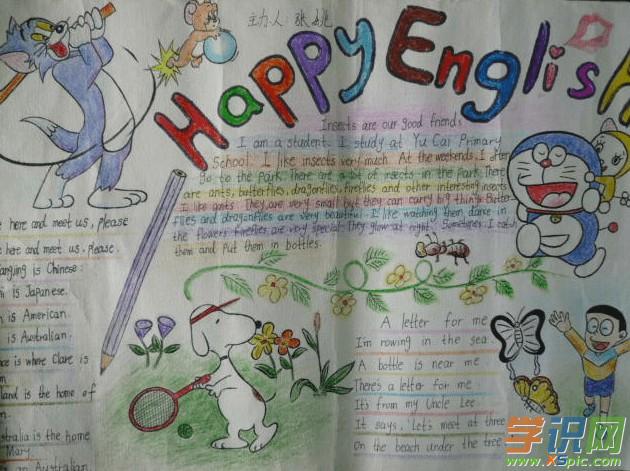 主力人:张
Happy English
Insects are our good friends
I am a student. I study at Yu Cai Primary
School. I like insects very much. At the weekends, I often
Go to the park. There are a lot of insects in the park. There
are ants, butterflies, dragonflies, fireflies and other interesting insects
I like ants. They are very small but they can carry big things. Butter-
flies and dragonflies are very beautiful. I like watching them dance in
the flowers. fireflies are very special. They glow at night. Sometimes I catch
them and put them in bottles.
e here and meet us, please
e here and meet us, please.
is Chinese.
is Japanese.
is American.
is Australian.
ce is where Clare is
land is the home of
stralia is the home
Mary.
an Australian.
A letter for me
I'm rowing in the sea.
A bottle is near me
There's a letter for me.
It's from my Uncle Lee.
It says, "Let's meet at three
On the beach under the tree
学识网
www.XSpic.com